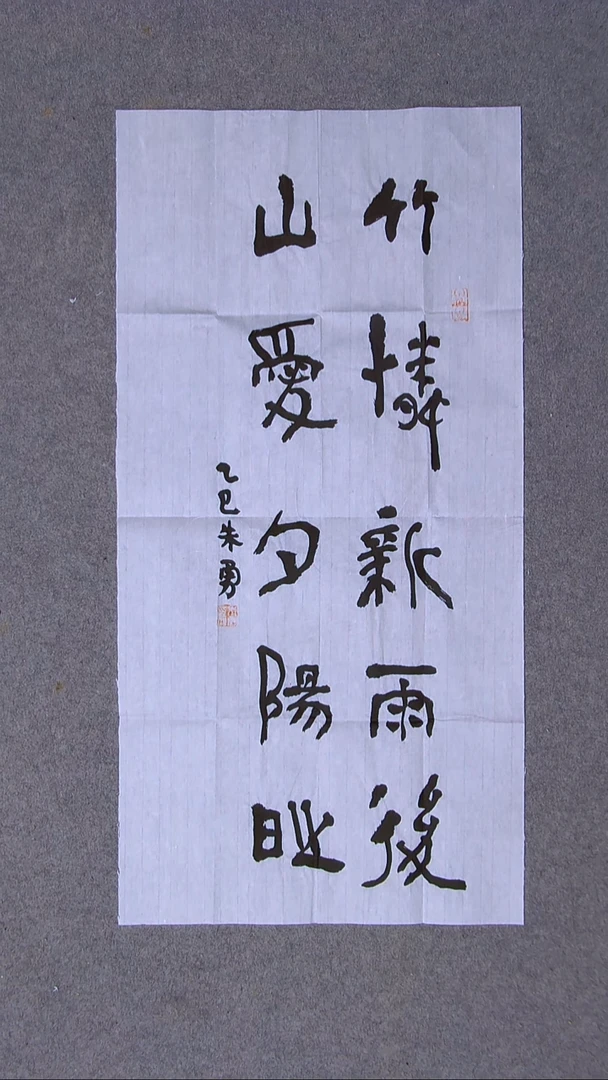 竹憐新雨後
山愛夕陽時
乙巳朱勇